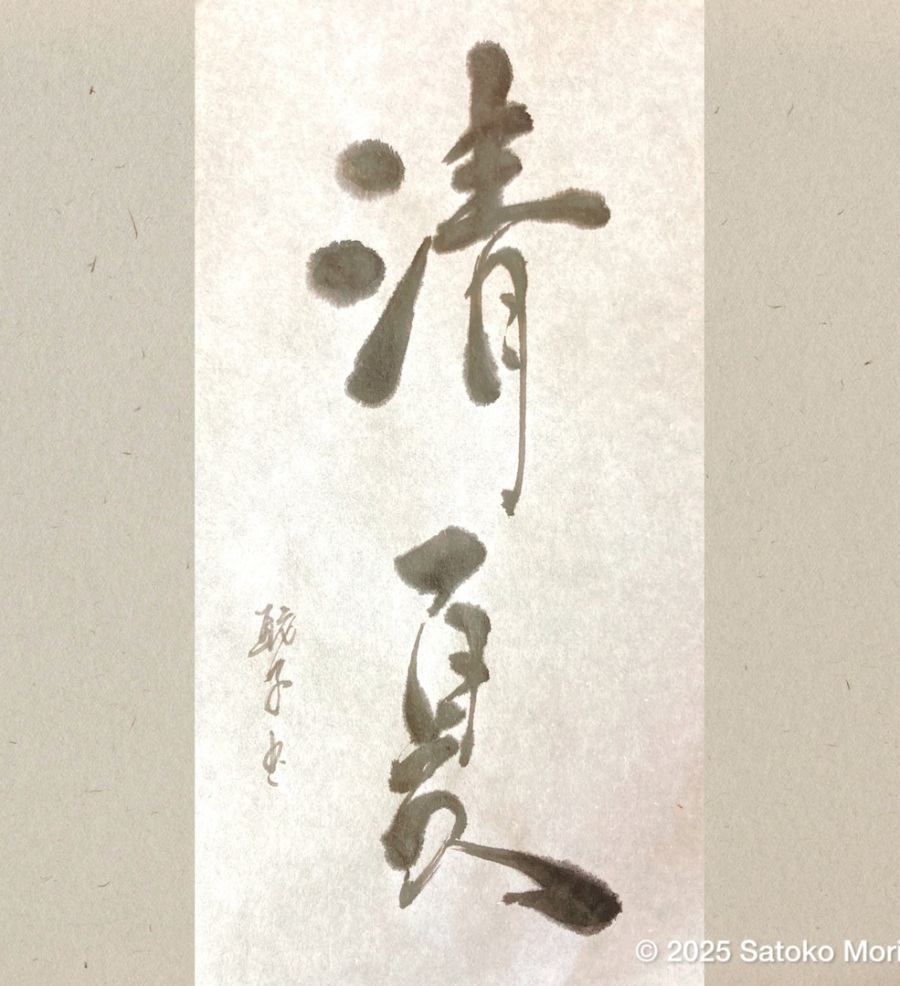 清夏
聡子書
© 2025 Satoko Mori